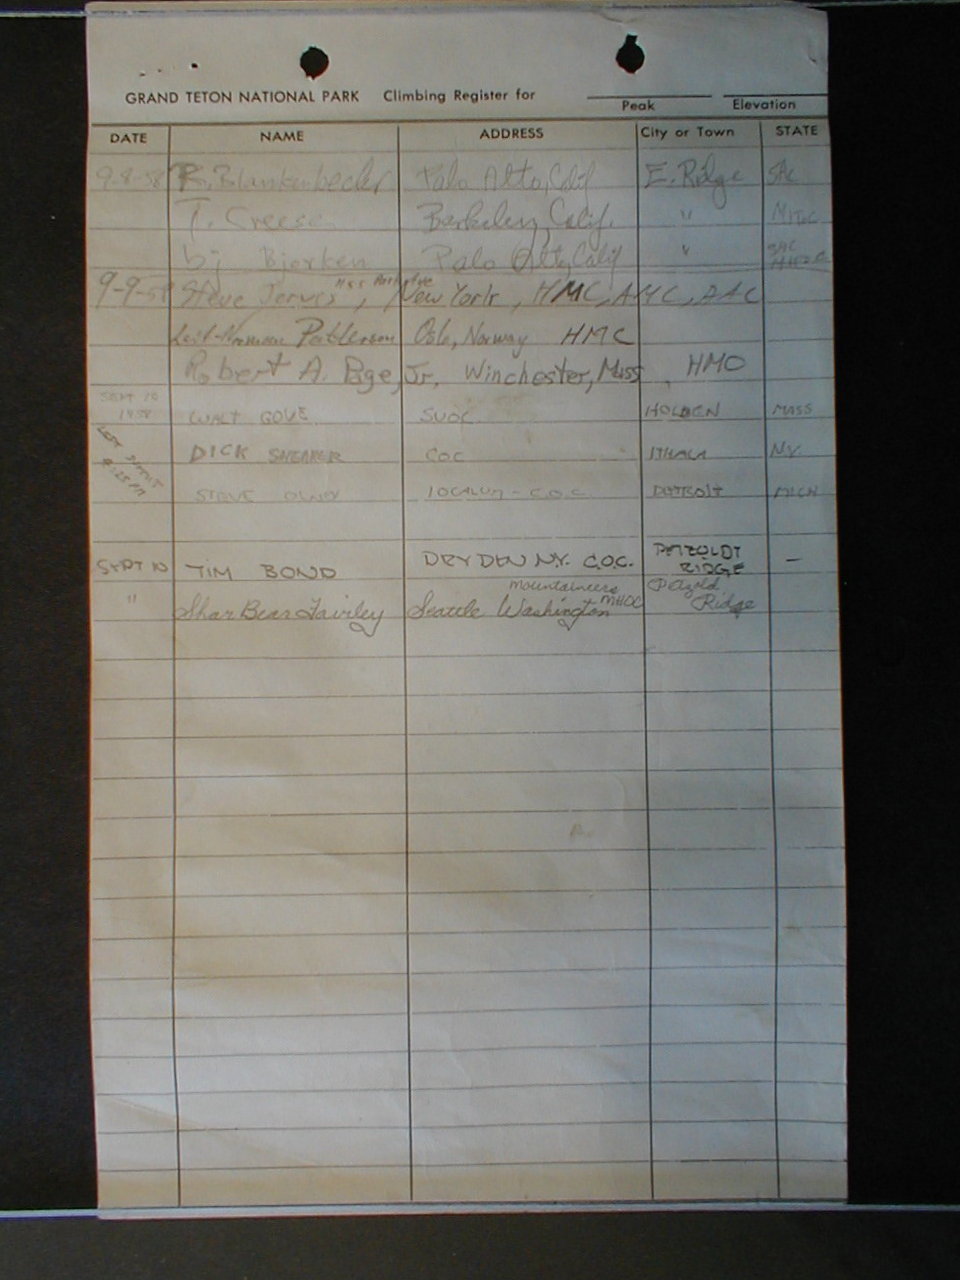 GRAND TETON NATIONAL PARK Climbing Register for
Peak Elevation
DATE NAME ADDRESS City or Town STATE
9-8-58 R. Blankenbecler Palo Alto, Calif E. Ridge SAC
T. Creese Berkeley, Calif. "
bj Bjorken Palo Alto, Calif "
9-9-58 Steve Jervis, New York, HMC, AMC, AAC
Leif-Norman Patterson Oslo, Norway HMC
Robert A. Page, Jr. Winchester, Mass, HMC
SEPT 10
1958 WALT GOVE SUOC HOLDEN MASS
LEFT SUMMIT
DICK SHEARER COC ITHACA N.Y.
STEVE OLNEY COC DETROIT MICH
SEPT 10 TIM BOND DRYDEN N.Y. C.O.C. PETZOLDT RIDGE —
Mountaineers
" Seattle Washington Petzold Ridge